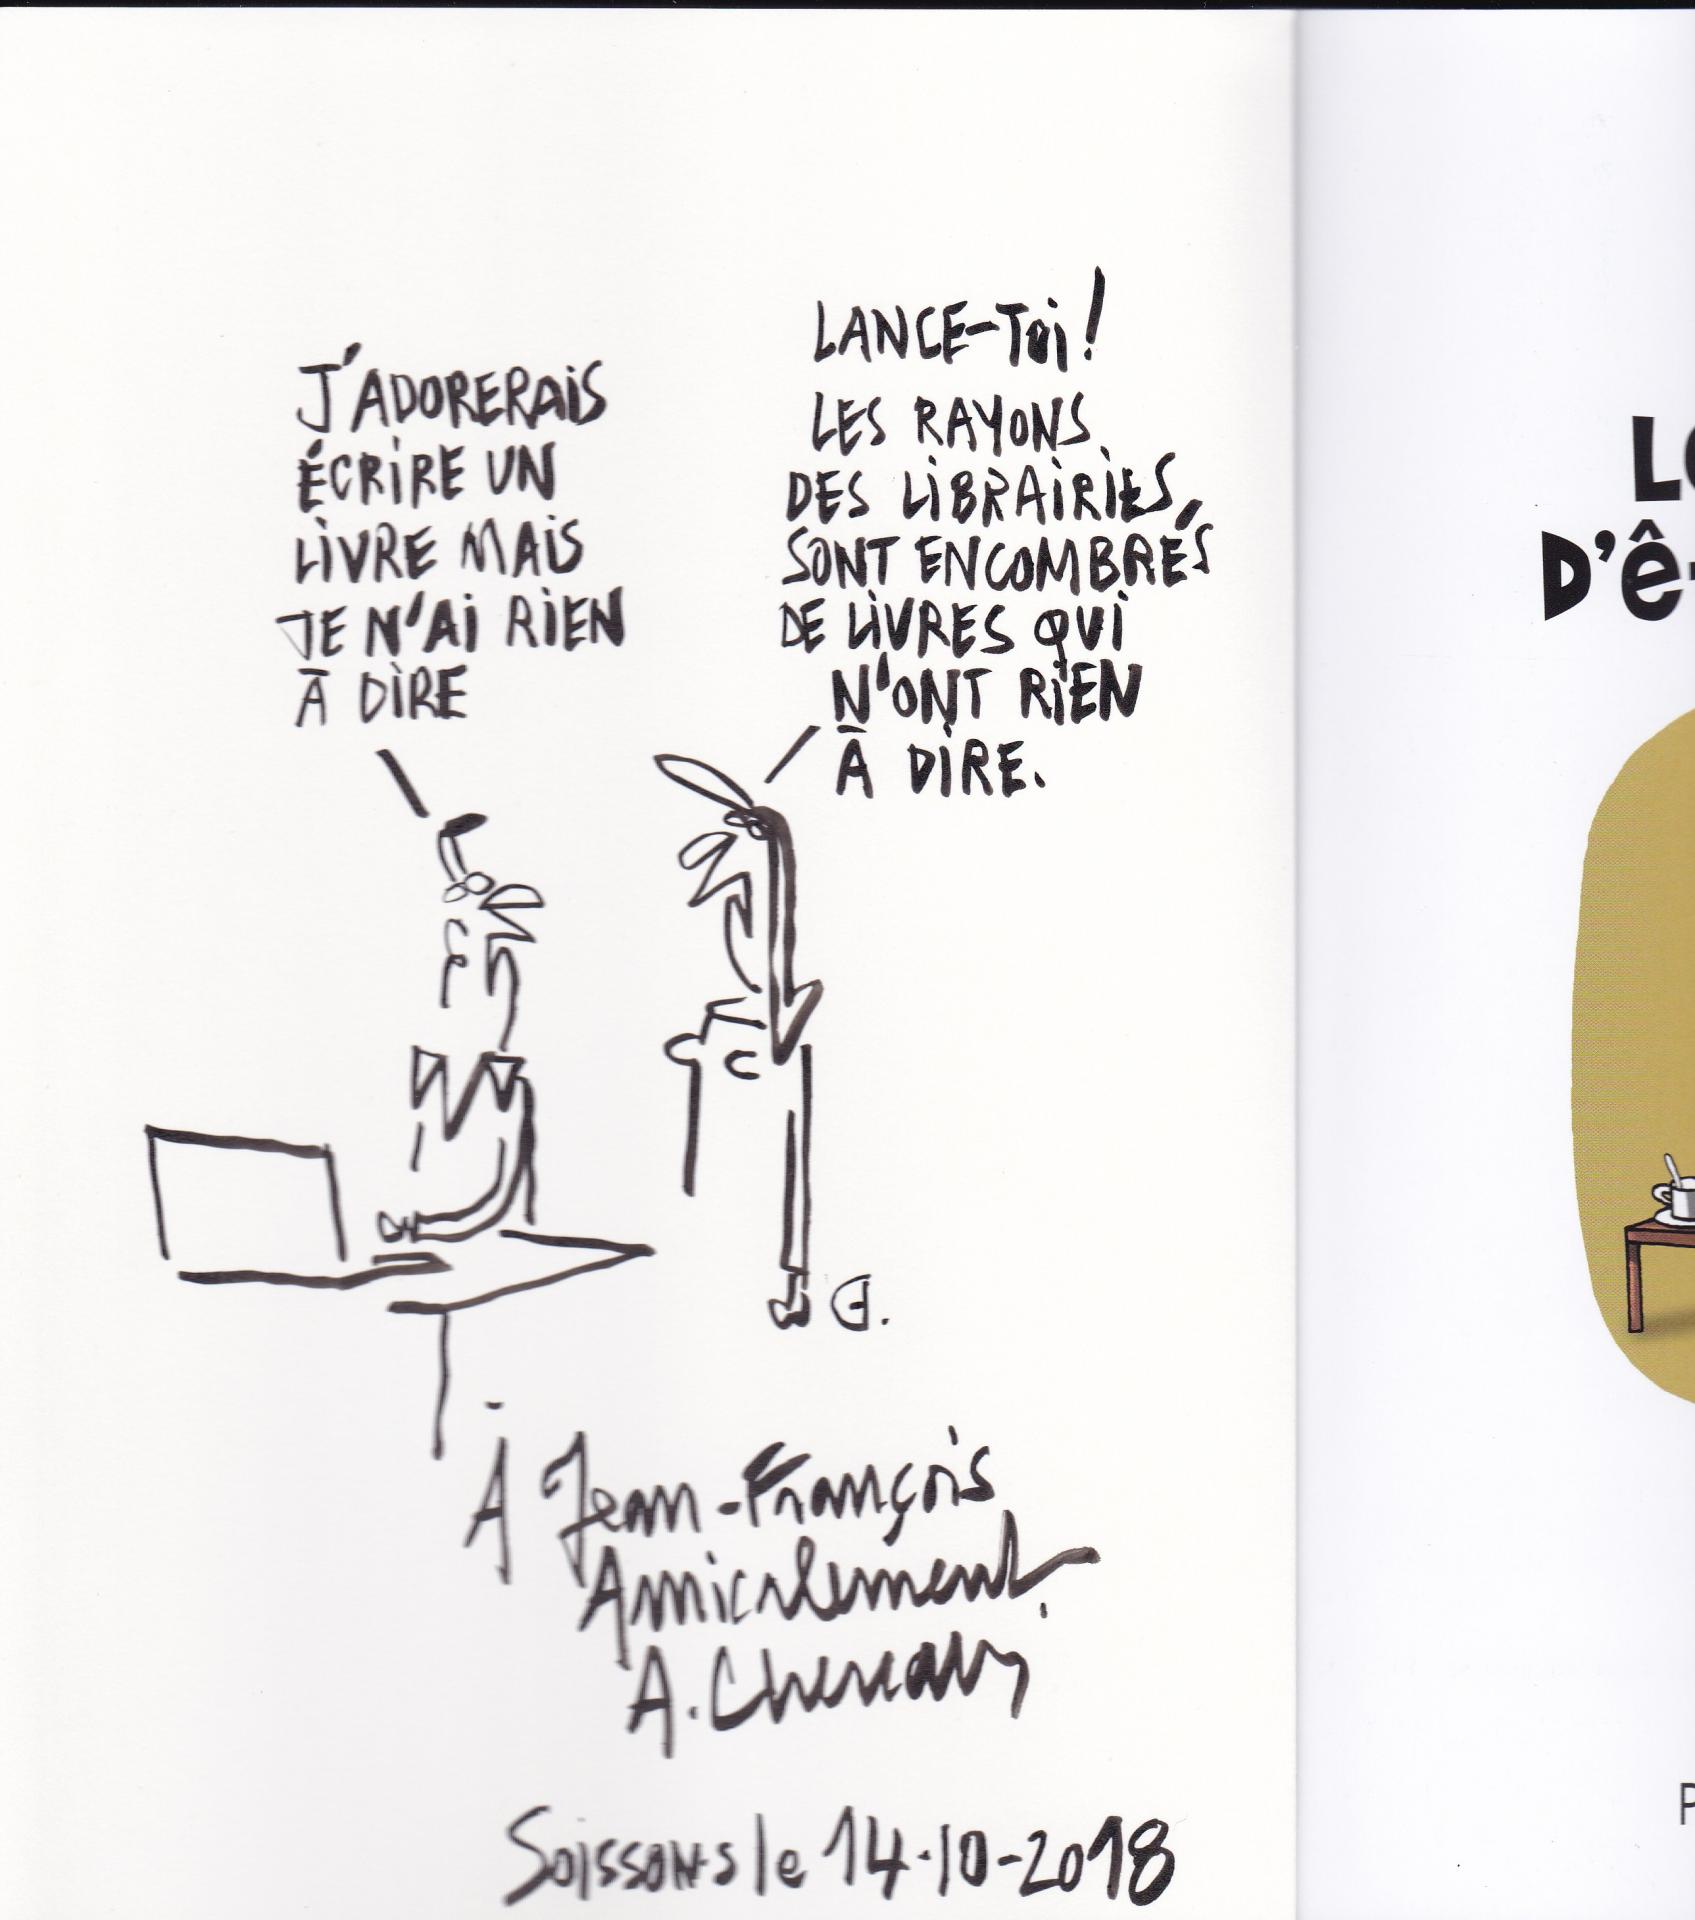 J'ADORERAIS
ÉCRIRE UN
LIVRE MAIS
JE N'AI RIEN
À DIRE
LANCE-TOI!
LES RAYONS
DES LIBRAIRIES
SONT ENCOMBRÉS
DE LIVRES QUI
N'ONT RIEN
À DIRE.
À Jean-François
Amicalement
A. Chereau
Soissons le 14-10-2018
D'ê
P